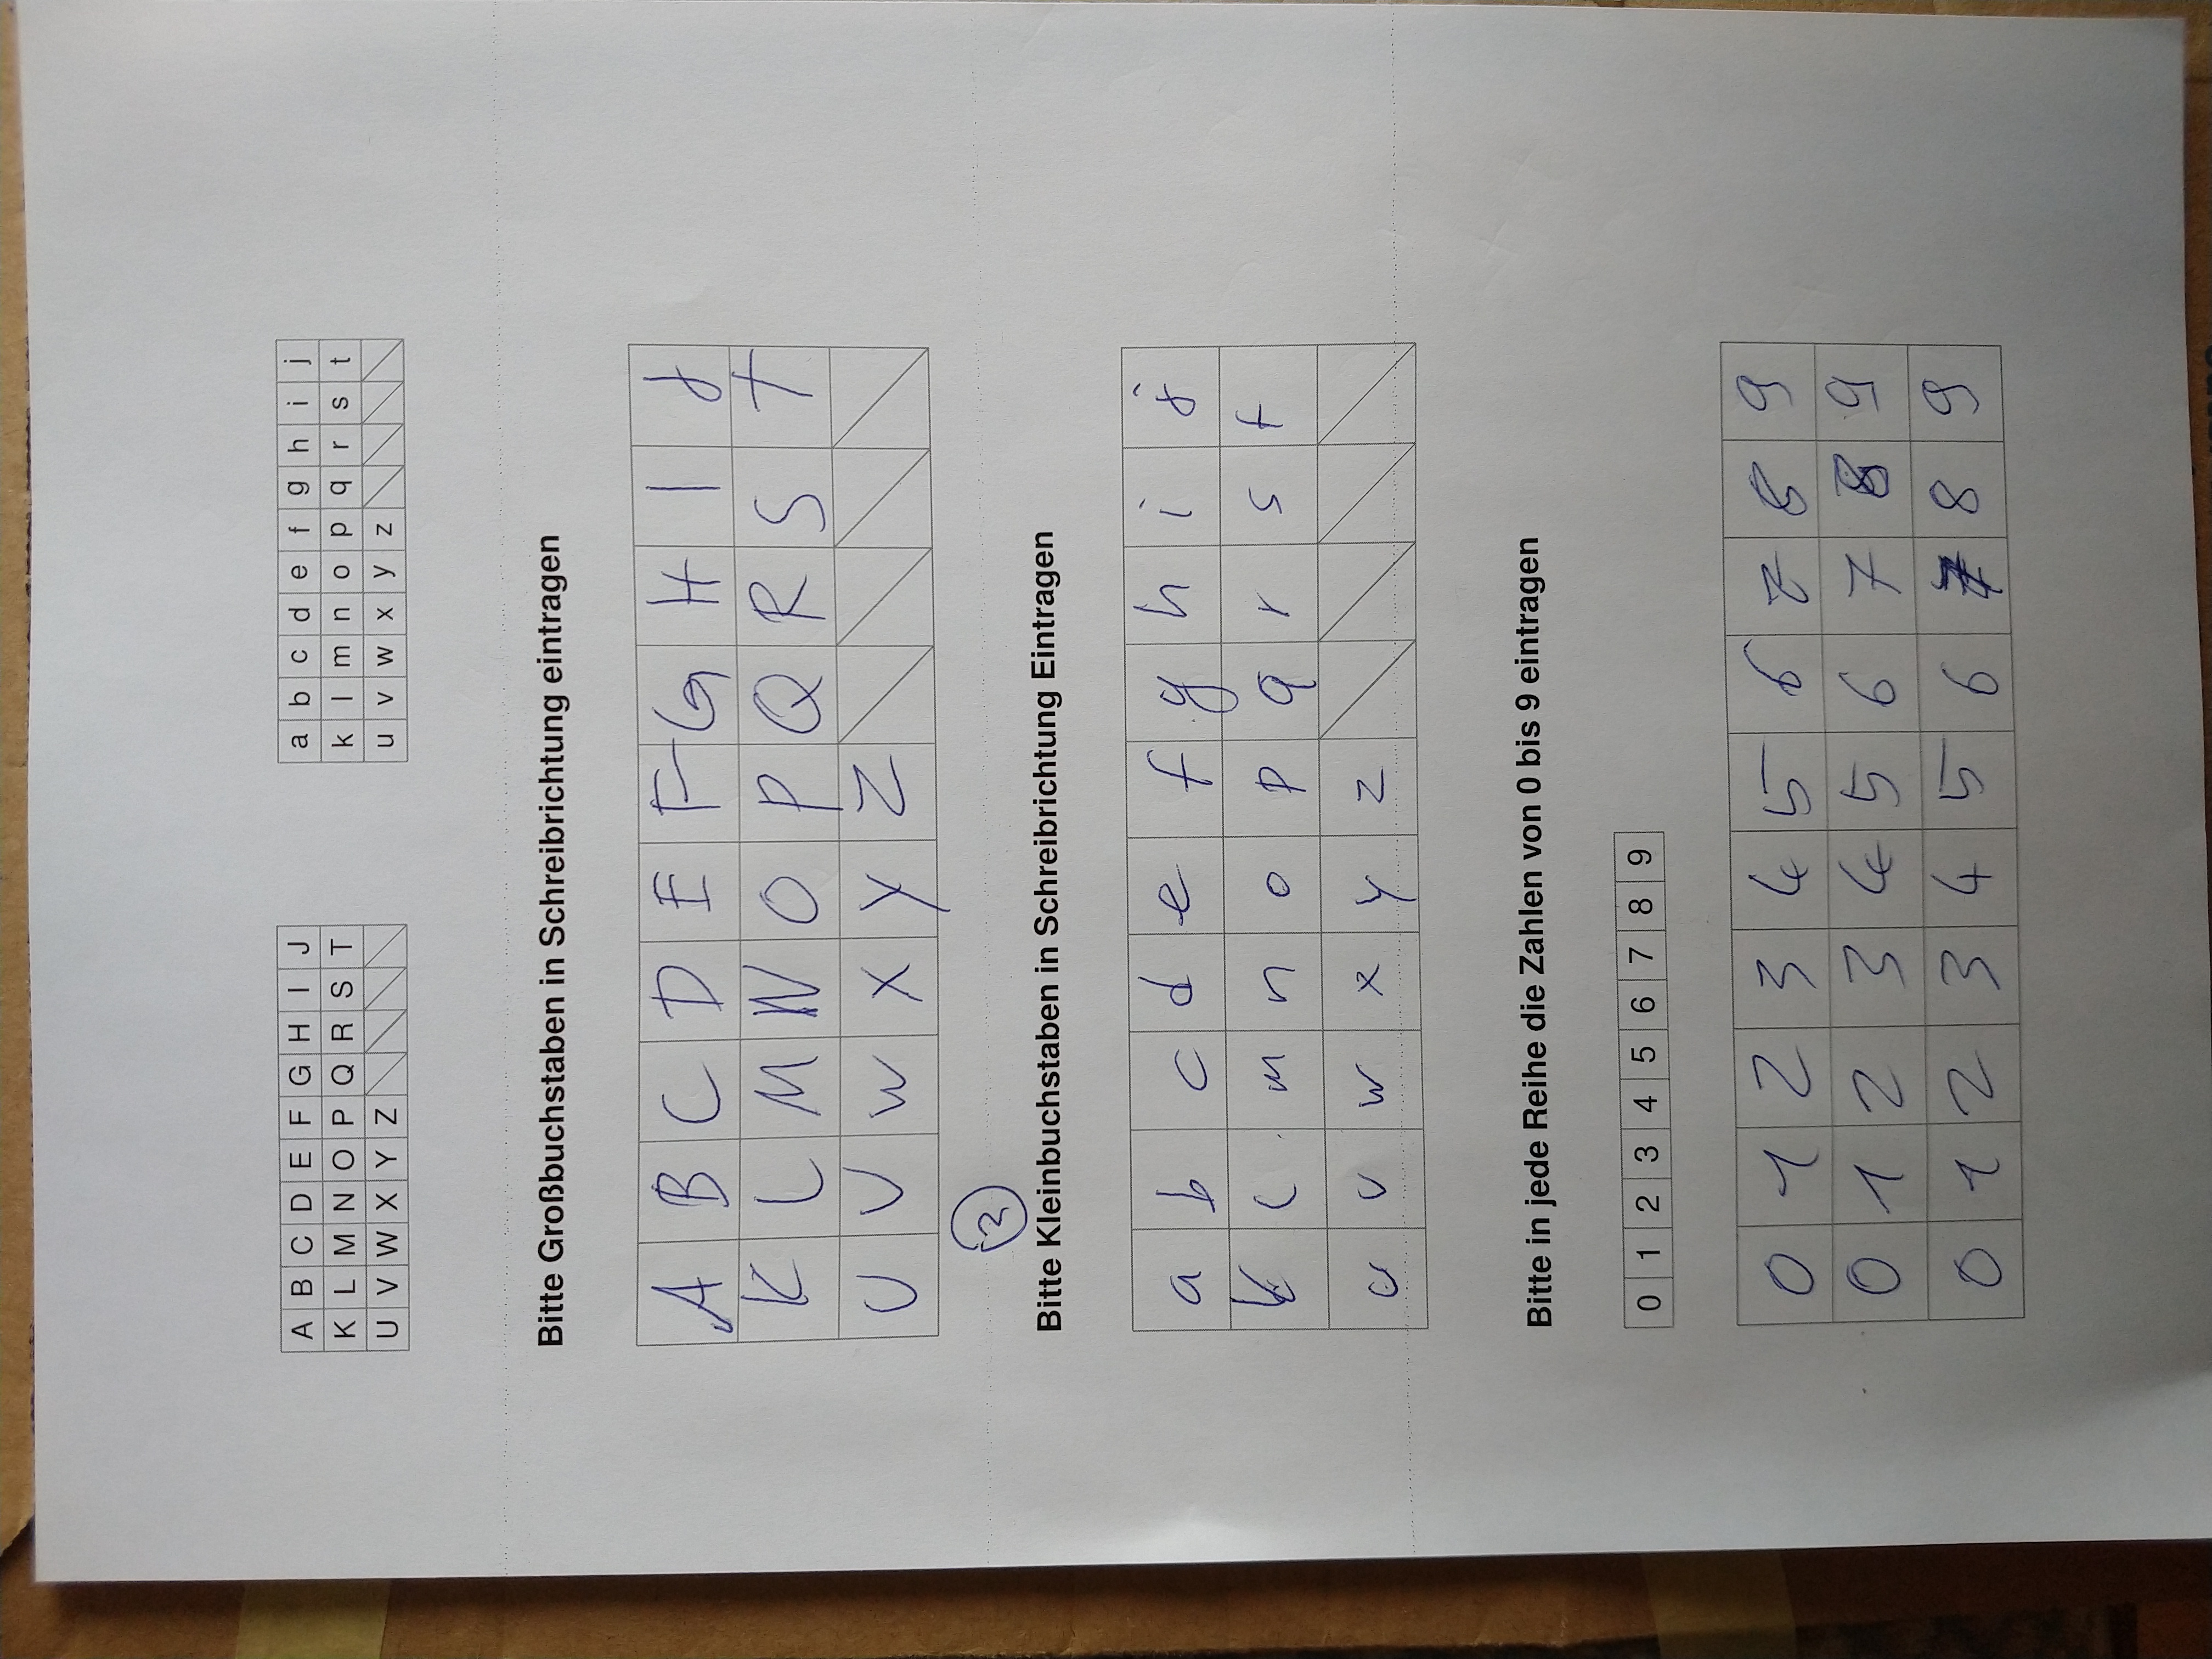 A B C D E F G H I J
K L M N O P Q R S T
U V W X Y Z
a b c d e f g h i j
k l m n o p q r s t
u v w x y z
Bitte Großbuchstaben in Schreibrichtung eintragen
A B C D E F G H I J
K L M N O P Q R S T
U V W X Y Z
2
Bitte Kleinbuchstaben in Schreibrichtung Eintragen
a b c d e f g h i j
k l m n o p q r s t
u v w x y z
Bitte in jede Reihe die Zahlen von 0 bis 9 eintragen
0 1 2 3 4 5 6 7 8 9
0 1 2 3 4 5 6 7 8 9
0 1 2 3 4 5 6 7 8 9
0 1 2 3 4 5 6 7 8 9